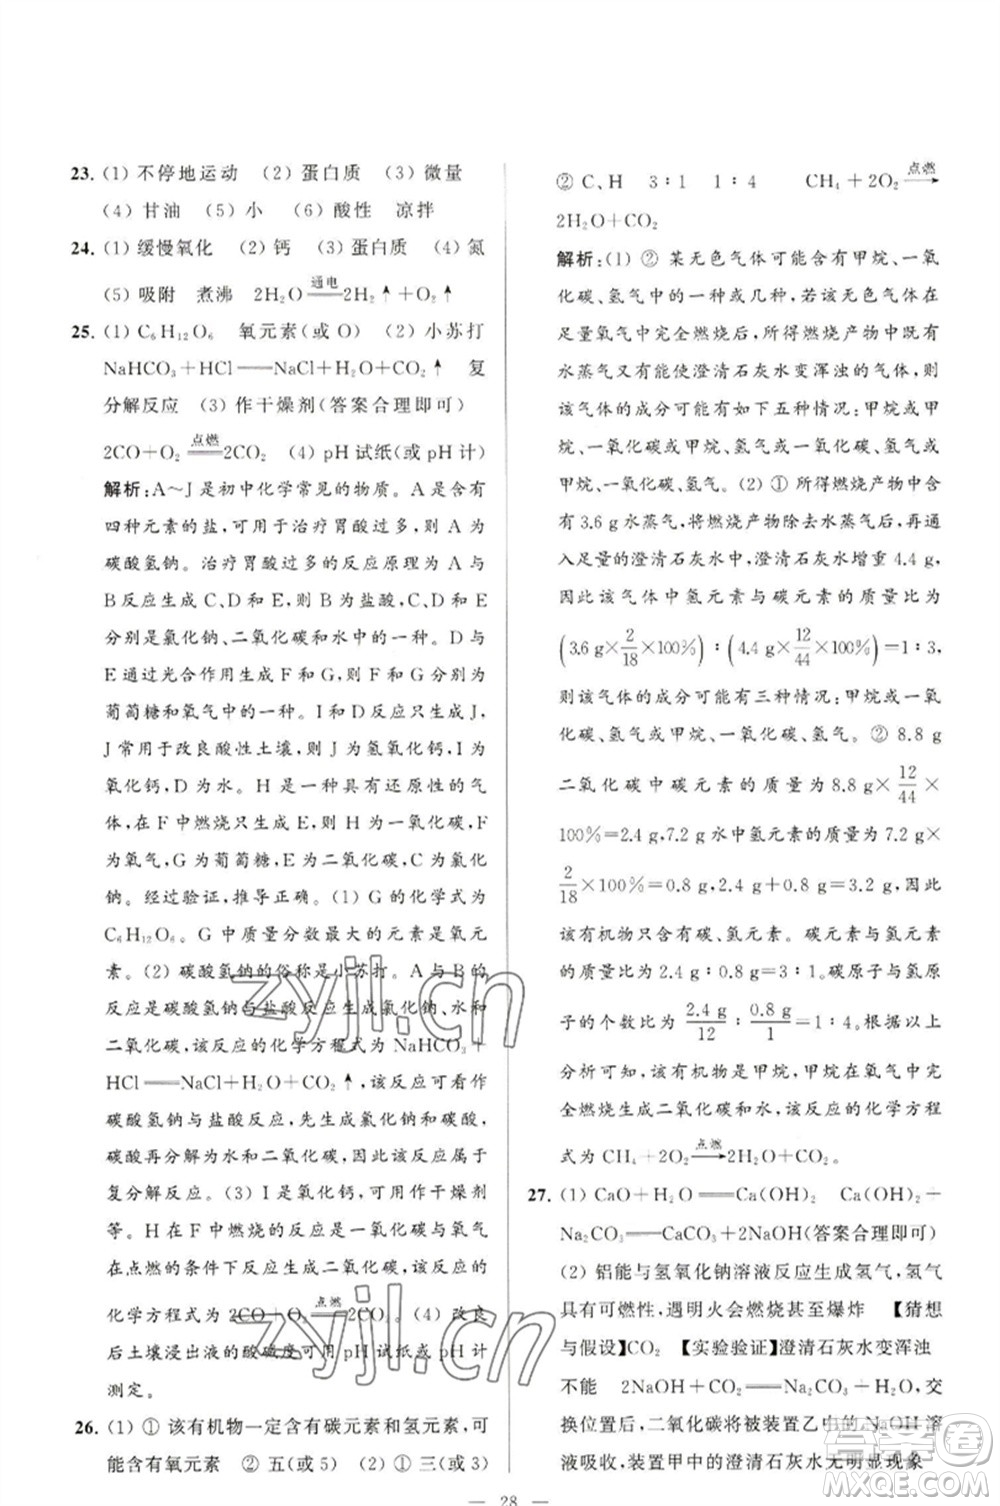 23. (1) 不停地运动 (2) 蛋白质 (3) 微量
(4) 甘油 (5) 小 (6) 酸性 凉拌
24. (1) 缓慢氧化 (2) 钙 (3) 蛋白质 (4) 氮
(5) 吸附 煮沸 2H₂O 通电 2H₂↑+O₂↑
25. (1) C₆H₁₂O₆ 氧元素(或 O) (2) 小苏打
NaHCO₃+HCl══NaCl+H₂O+CO₂↑ 复
分解反应 (3) 作干燥剂(答案合理即可)
2CO+O₂ 点燃 2CO₂ (4) pH 试纸(或 pH 计)
解析:A~J 是初中化学常见的物质。A 是含有
四种元素的盐,可用于治疗胃酸过多,则 A 为
碳酸氢钠。治疗胃酸过多的反应原理为 A 与
B 反应生成 C、D 和 E,则 B 为盐酸,C、D 和 E
分别是氯化钠、二氧化碳和水中的一种。D 与
E 通过光合作用生成 F 和 G,则 F 和 G 分别为
葡萄糖和氧气中的一种。I 与 D 反应生成 J,
J 常用于改良酸性土壤,则 J 为氢氧化钙,I 为
氧化钙,D 为水。H 是一种具有还原性的气
体,在 F 中燃烧只生成 E,则 H 为一氧化碳,F
为氧气,G 为葡萄糖,E 为二氧化碳,C 为氯化
钠。经过验证,推导正确。(1) G 的化学式为
C₆H₁₂O₆。G 中质量分数最大的元素是氧元
素。(2) 碳酸氢钠的俗称是小苏打。A 与 B 的
反应是碳酸氢钠与盐酸反应生成氯化钠、水和
二氧化碳,该反应的化学方程式为 NaHCO₃+
HCl══NaCl+H₂O+CO₂↑,该反应可看作
碳酸氢钠与盐酸反应,先生成氯化钠和碳酸,
碳酸再分解为水和二氧化碳,因此该反应属于
复分解反应。(3) I 是氧化钙,可用作干燥剂
等。H 在 F 中燃烧的反应是一氧化碳与氧气
在点燃的条件下反应生成二氧化碳,该反应的
化学方程式为 2CO+O₂ 点燃 2CO₂。(4) 改良
后土壤浸出液的酸碱度可用 pH 试纸或 pH 计
测定。
26. (1) ① 该有机物一定含有碳元素和氢元素,可
能含有氧元素 ② 五(或 5) (2) ① 三(或 3)
② C、H 3∶1 1∶4 CH₄+2O₂ 点燃→
2H₂O+CO₂
解析:(1) ② 某无色气体可能含有甲烷、一氧
化碳、氢气中的一种或几种,若该无色气体在
足量氧气中完全燃烧后,所得燃烧产物中既有
水蒸气又有能使澄清石灰水变浑浊的气体,则
该气体的成分可能有如下五种情况:甲烷或甲
烷、一氧化碳或甲烷、氢气或一氧化碳、氢气或
甲烷、一氧化碳、氢气。(2) ① 所得燃烧产物中含
有 3.6 g 水蒸气,将燃烧产物除去水蒸气后,再通
入足量的澄清石灰水中,澄清石灰水增重 4.4 g,
因此该气体中氢元素与碳元素的质量比为
(3.6 g×2/18×100%)∶(4.4 g×12/44×100%)=1∶3,
则该气体的成分可能有三种情况:甲烷或一氧
化碳、氢气或甲烷、一氧化碳、氢气。② 8.8 g
二氧化碳中碳元素的质量为 8.8 g×12/44×
100%=2.4 g,7.2 g 水中氢元素的质量为 7.2 g×
2/18×100%=0.8 g,2.4 g+0.8 g=3.2 g,因此
该有机物只含有碳、氢元素。碳元素与氢元素
的质量比为 2.4 g∶0.8 g=3∶1,碳原子与氢原
子的个数比为 2.4 g/12∶0.8 g/1=1∶4。根据以上
分析可知,该有机物是甲烷,甲烷在氧气中完
全燃烧生成二氧化碳和水,该反应的化学方程
式为 CH₄+2O₂ 点燃→ 2H₂O+CO₂。
27. (1) CaO+H₂O══Ca(OH)₂ Ca(OH)₂+
Na₂CO₃══CaCO₃+2NaOH(答案合理即可)
(2) 铝能与氢氧化钠溶液反应生成氢气,氢气
具有可燃性,遇明火会燃烧甚至爆炸 【猜想
与假设】CO₂ 【实验验证】澄清石灰水变浑浊
不能 2NaOH+CO₂══Na₂CO₃+H₂O,交
换位置后,二氧化碳将被装置乙中的 NaOH 溶
液吸收,装置甲中的澄清石灰水无明显现象
— 28 —
zyjl.cn
zyjl.cn
答案圈
MXQE.COM